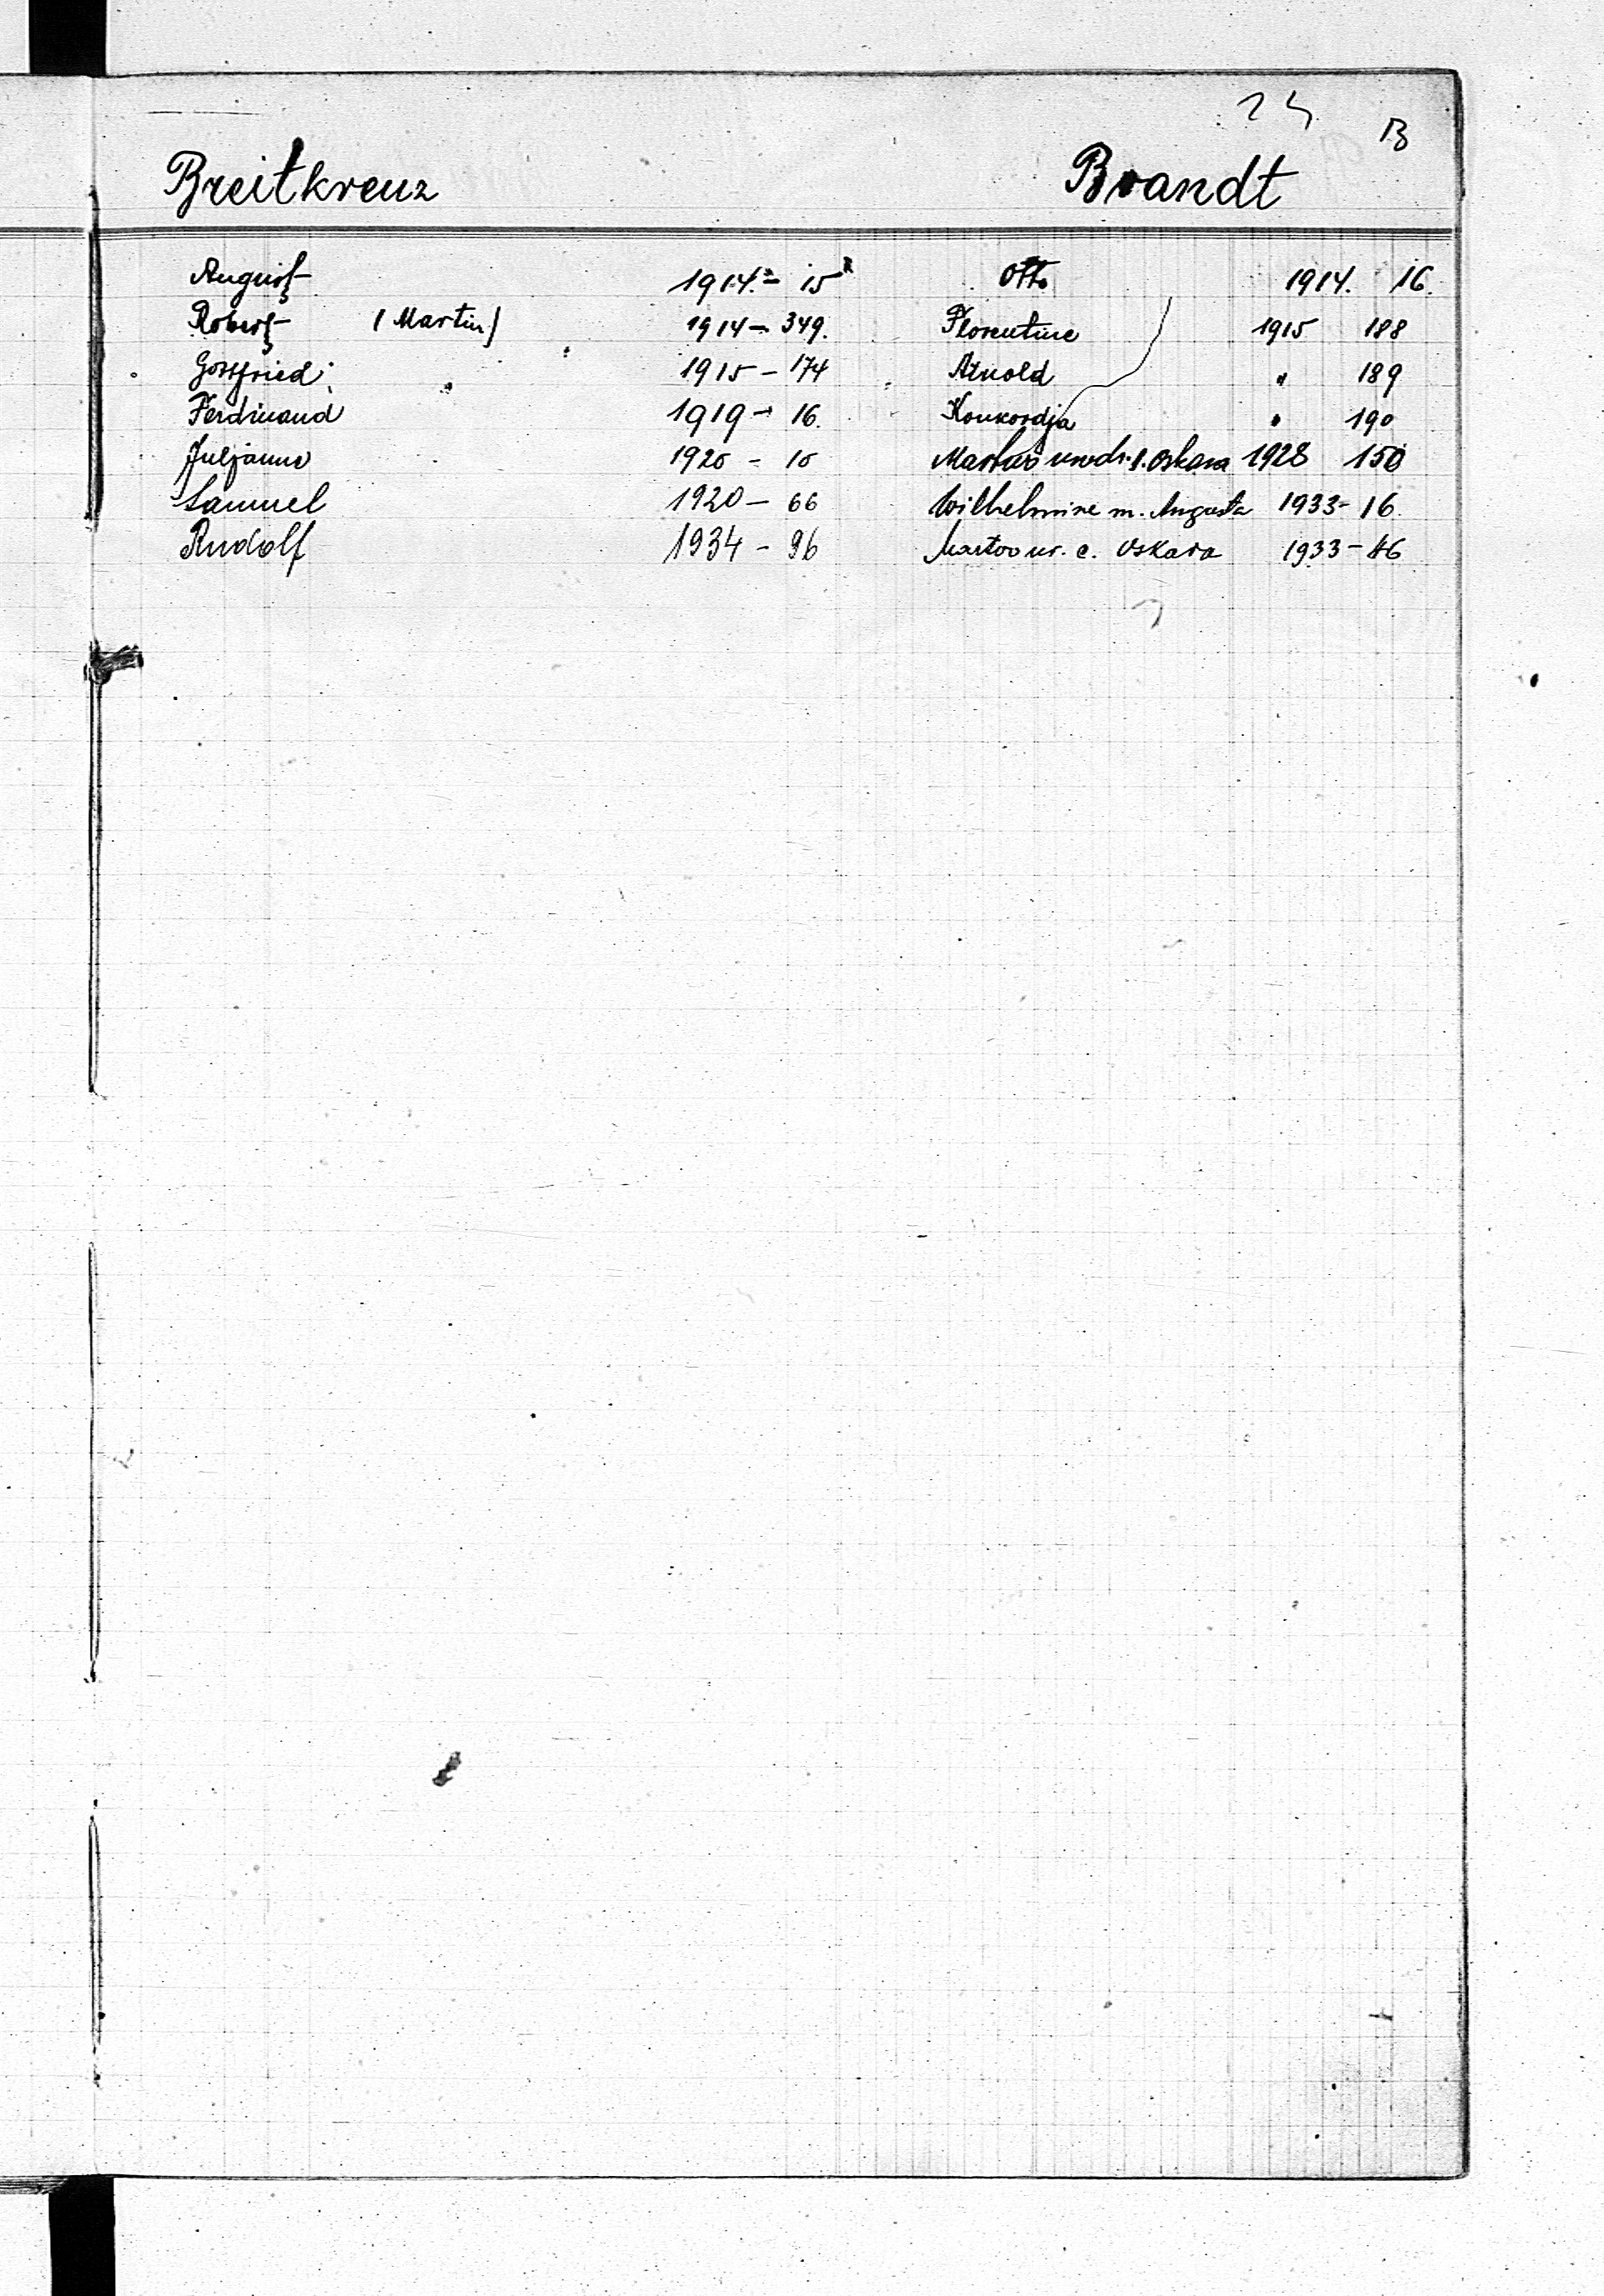 24 B
Breitkreuz
August 1914 - 15
Robert (Martin) 1914 - 349.
Gottfried 1915 - 174
Ferdinand 1919 - 16.
Juljanna 1920 - 10
Samuel 1920 - 66
Rudolf 1934 - 96
Brandt
Otto 1914. 16.
Florentine 1915 188
Arnold " 189
Konkordja " 190
Oskara 1928 150
Wilhelmine m. Augusta 1933 - 16.
Martwo ur. c. Oskara 1933 - 46